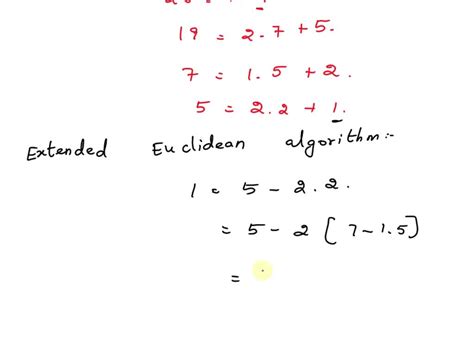 19 = 2.7 + 5.
7 = 1.5 + 2.
5 = 2.2 + 1.
Extended Euclidean algorithm:-
1 = 5 - 2.2.
= 5 - 2 [7 - 1.5]
=